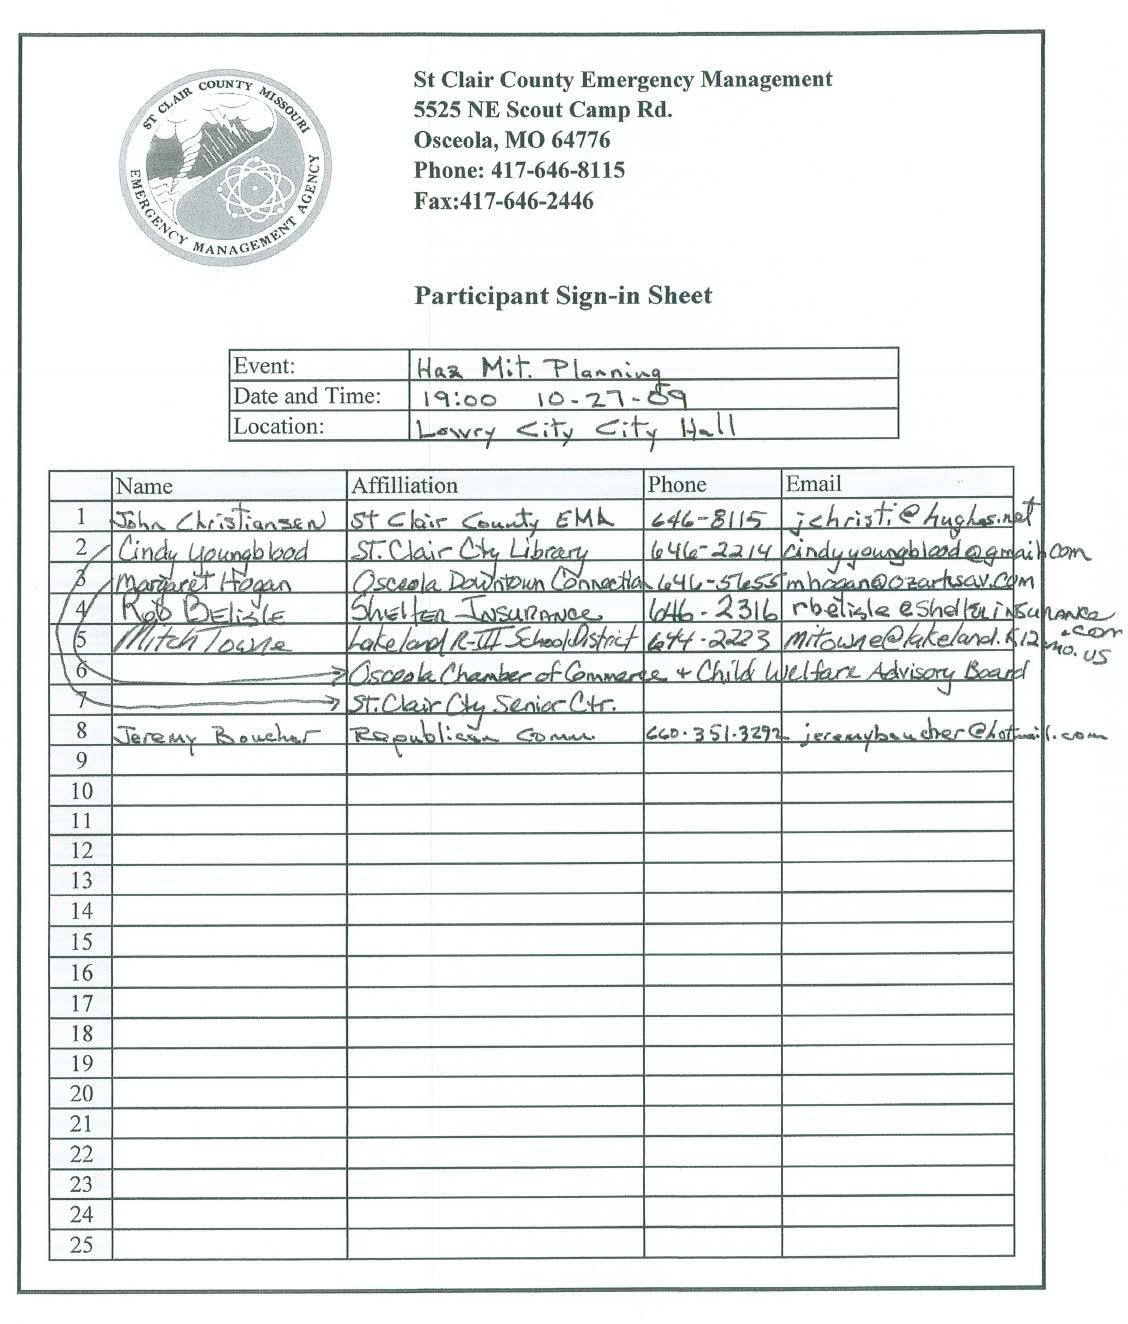 ST CLAIR COUNTY MISSOURI
EMERGENCY MANAGEMENT AGENCY
St Clair County Emergency Management
5525 NE Scout Camp Rd.
Osceola, MO 64776
Phone: 417-646-8115
Fax:417-646-2446
Participant Sign-in Sheet
Event: Haz Mit. Planning
Date and Time: 19:00 10-27-09
Location: Lowry City City Hall
Name Affilliation Phone Email
1 John Christiansen St Clair County EMA 646-8115 jchristi@hughes.net
2 Cindy Youngblood St. Clair Cty Library 646-2214 cindyyoungblood@gmail.com
3 Margaret Hogan Osceola Downtown Connection 646-5655 mhogan@ozarksav.com
4 Rob Belisle Shelter Insurance 646-2316 rbelisle@shelterinsurance.com
5 Mitch Towne Lakeland R-III School District 644-2223 mitowne@lakeland.k12.mo.us
6 Osceola Chamber of Commerce + Child Welfare Advisory Board
7 St. Clair Cty Senior Ctr.
8 Jeremy Boucher Republican Comm. 660-351-3292 jeremyboucher@hotmail.com
9
10
11
12
13
14
15
16
17
18
19
20
21
22
23
24
25